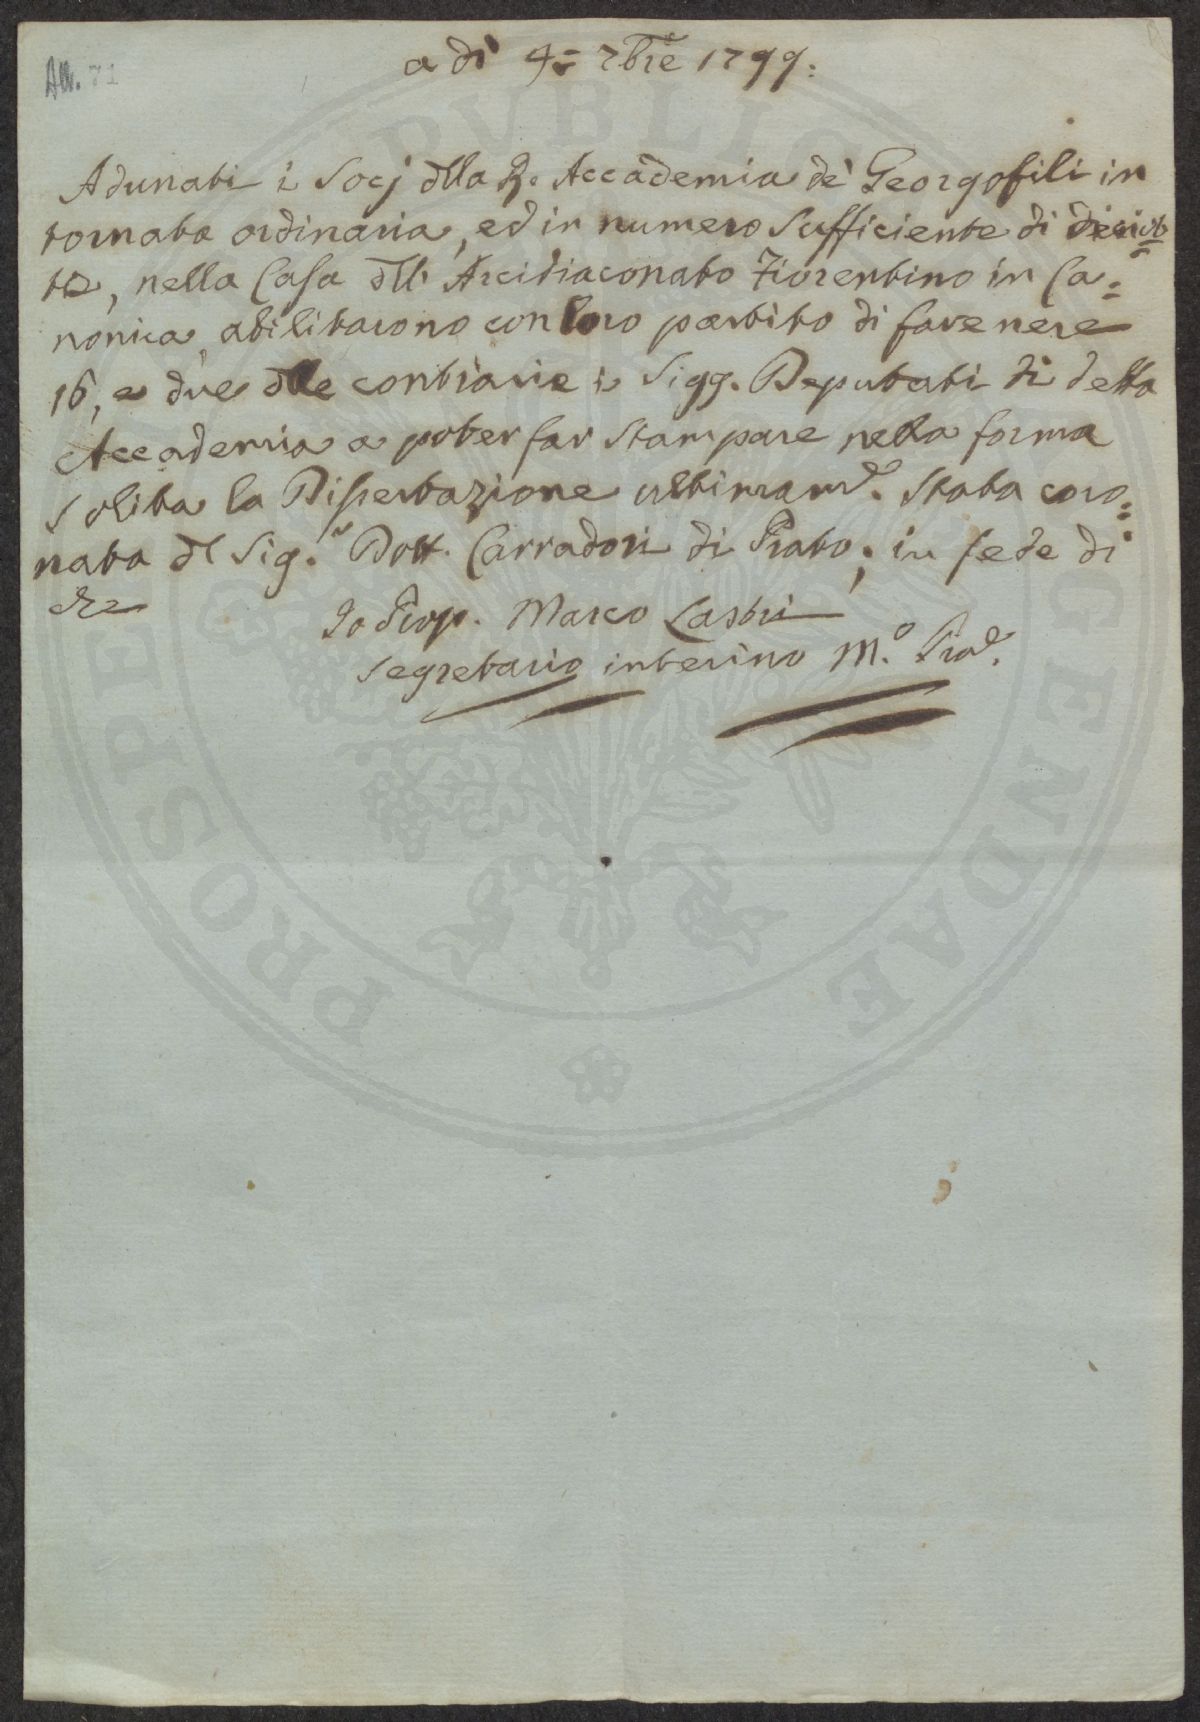 An. 71
a dì 4.= 7bre 1799.
Adunati i Socj dlla R. Accademia de' Georgofili in
tornata ordinaria, ed in numero sufficiente di diciot=
to, nella Casa dll' Arcidiaconato Fiorentino in Ca=
nonica, abilitarono con loro partito di fave nere
16, e due dlle contrarie i Sigg. Deputati di detta
Accademia a poter far stampare nella forma
solita la Dissertazione ultimam.e stata coro=
nata dl Sig.r Dott. Carradori di Prato; in fede di
che
Io Prop. Marco Lastri
Segretario interino M.o Prod.
PROSPERITATI PUBLICAE AUGENDAE